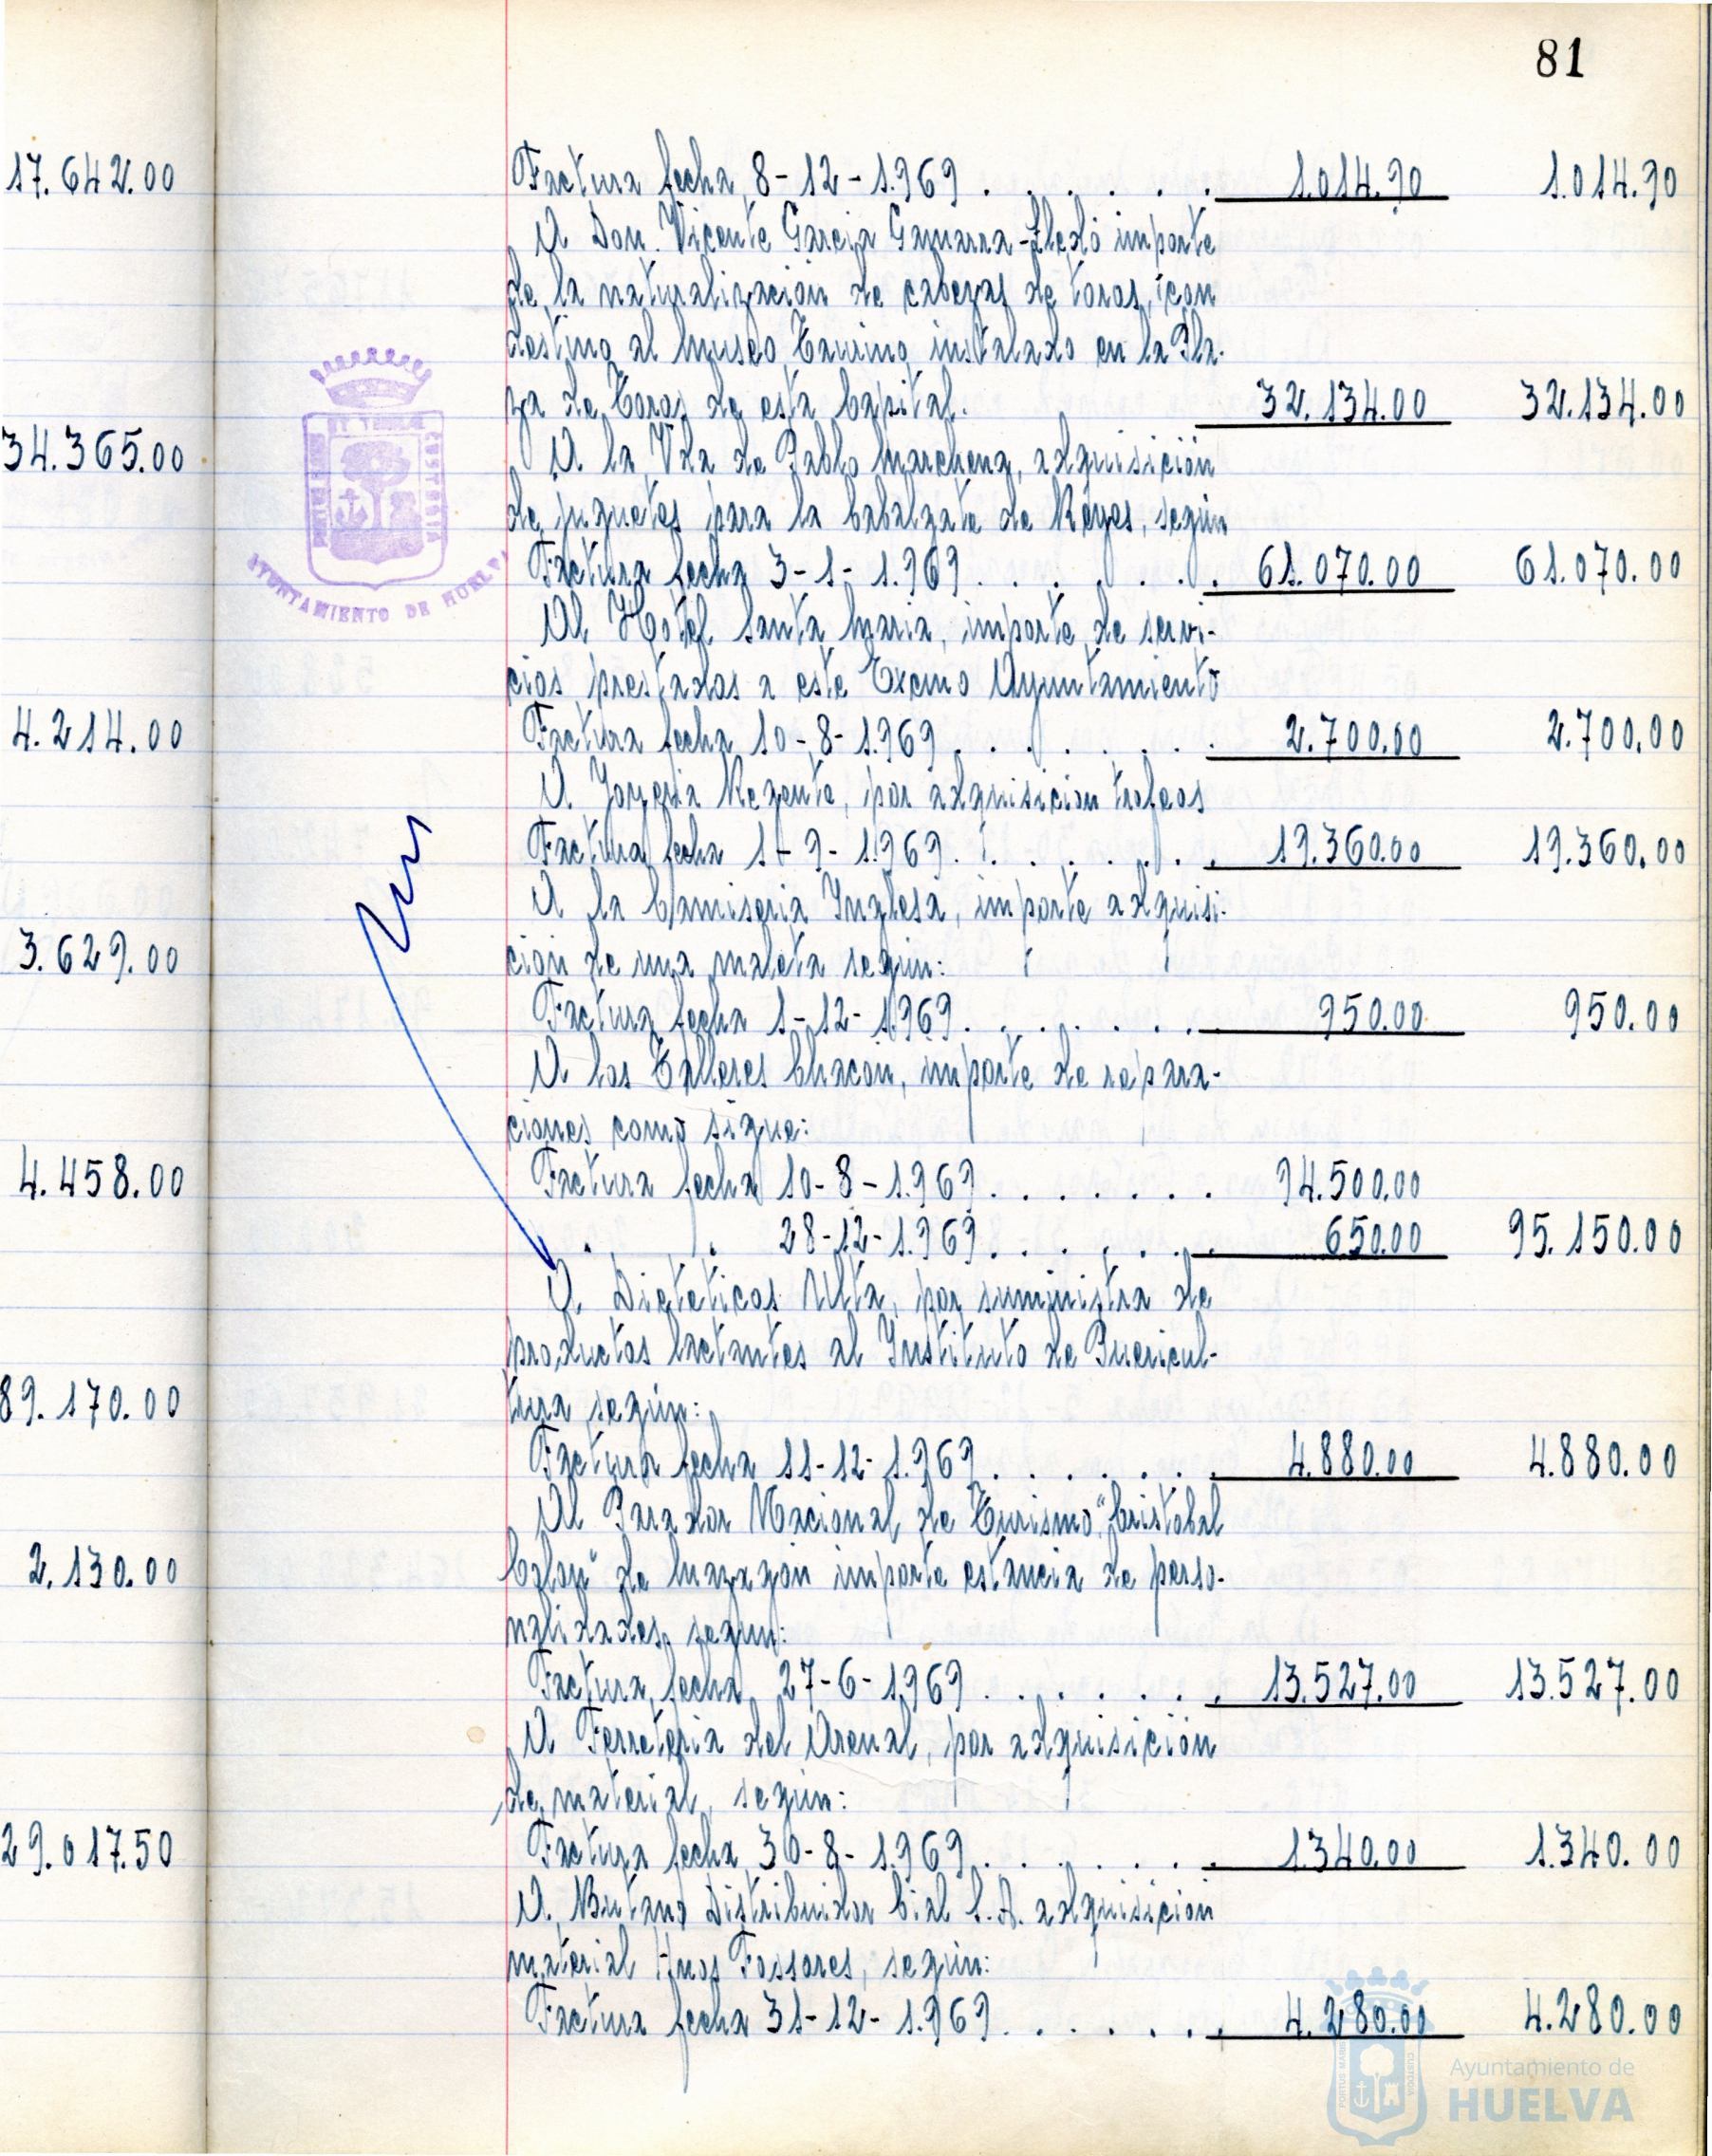 81
17.642.00
34.365.00
4.214.00
3.629.00
4.458.00
89.170.00
2.130.00
29.017.50
AYUNTAMIENTO DE HUELVA
Factura fecha 8-12-1.969 . . . . . . 1.014.90 1.014.90
A Don. Vicente Garcia Gamarra- importe
de la naturalización de cabezas de toros, con
destino al Museo Taurino instalado en la Pla-
za de Toros de esta Capital. 32.134.00 32.134.00
A la Vda de Pablo Marchena, adquisición
de juguetes para la Cabalgata de Reyes, según
Factura fecha 3-1-1.969 . . . . . . 61.070.00 61.070.00
Al Hotel Santa Maria, importe de servi-
cios prestados a este Excmo Ayuntamiento
Factura fecha 10-8-1.969 . . . . . . 2.700.00 2.700.00
A Joyeria Regente, por adquisicion trofeos
Factura fecha 1-9-1.969 . . . . . . 19.360.00 19.360.00
A la Camiseria Inglesa, importe adquisi-
ción de una maleta según:
Factura fecha 1-12-1.969 . . . . . . 950.00 950.00
A los Talleres Chacón, importe de repara-
ciones como sigue:
Factura fecha 10-8-1.969 . . . . . . . 94.500.00
. . 28-12-1.969 . . . . . . 650.00 95.150.00
A. Dieteticos Ulta, por suministra de
productos lactantes al Instituto de Puericul-
tura según:
Factura fecha 11-12-1.969 . . . . . . 4.880.00 4.880.00
Al Parador Nacional de Turismo "Cristobal
Colon" de Mazagón importe estancia de perso-
nalidades, segun:
Factura fecha 27-6-1.969 . . . . . . 13.527.00 13.527.00
A Ferreteria del Arenal, por adquisición
de material, según:
Factura fecha 30-8-1.969 . . . . . . 1.340.00 1.340.00
A. Butano Distribuidor Cial S.A. adquisición
material Hnos Fossores, según:
Factura fecha 31-12-1.969 . . . . . . 4.280.00 4.280.00
Ayuntamiento de
HUELVA